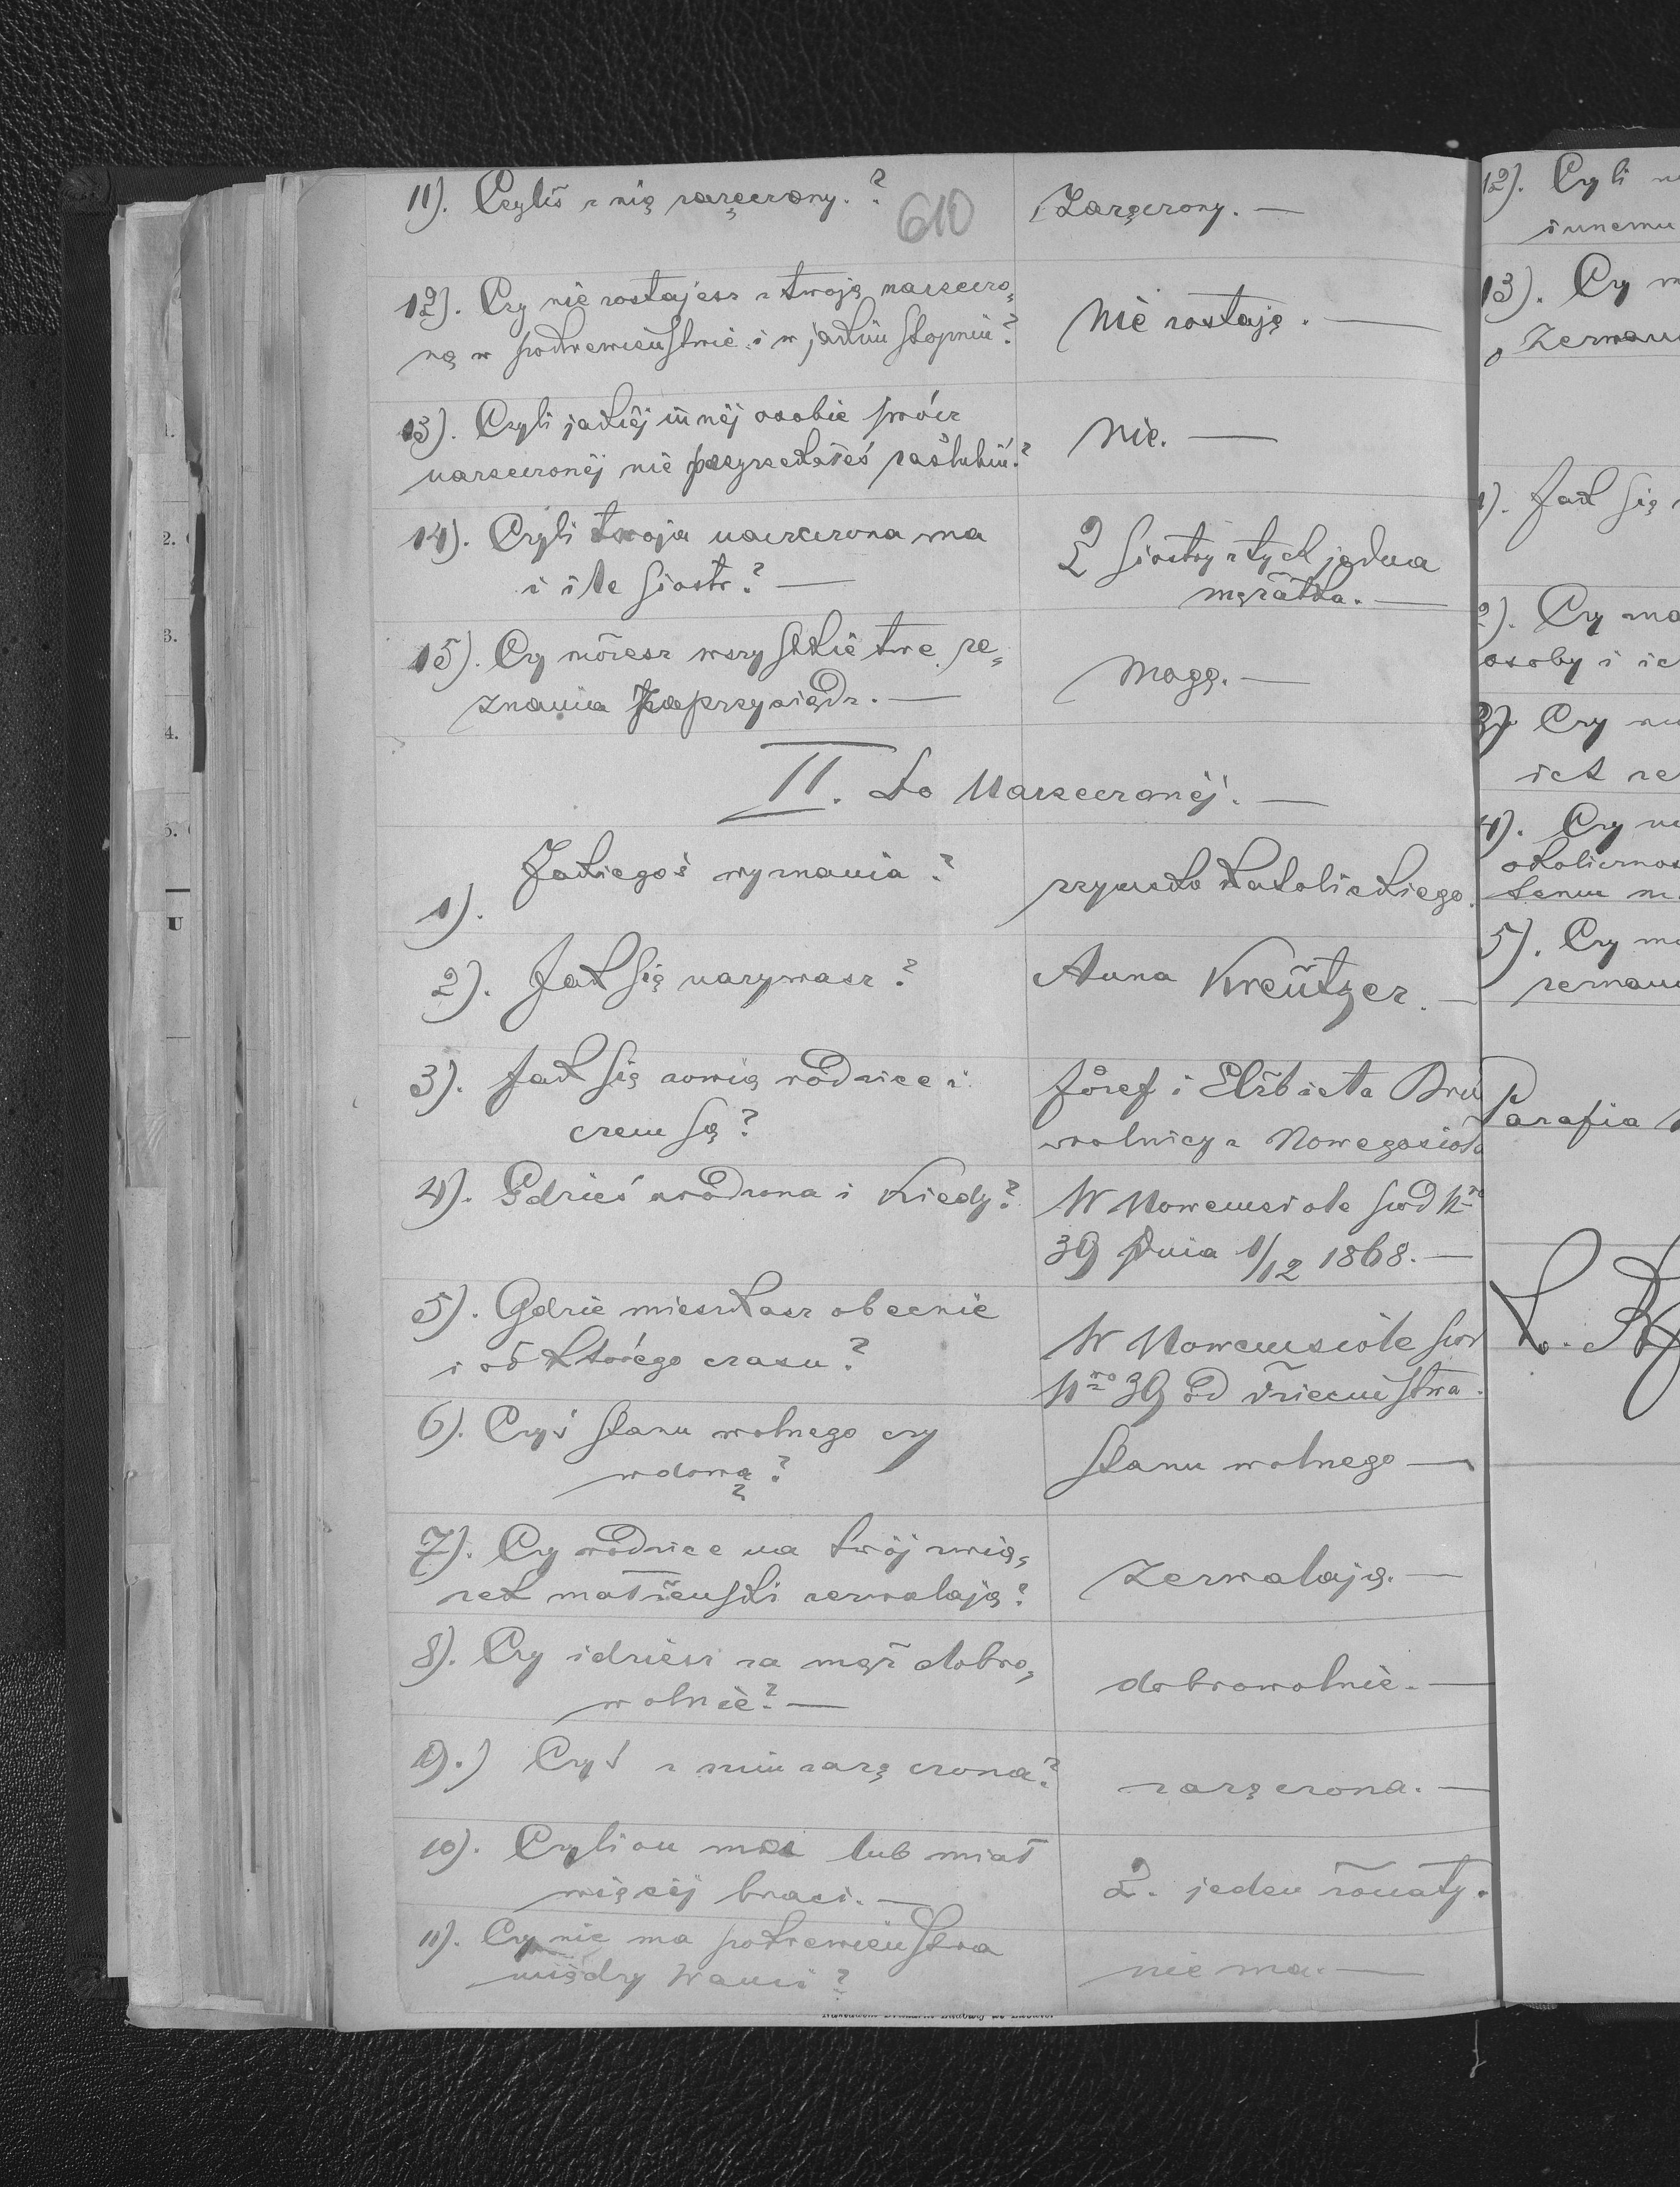 11). Czyliś z nią zaręczony.?
610
Zaręczony. —
12). Czy nie zostajesz z twoją narzeczo„
ną w pokrewieństwie i w jakim stopniu?
Nie zostaję. —
13). Czyli jakiéj innéj osobie prócz
narzeczonéj nie przyrzekałeś zaślubin?
Nie. —
14). Czyli twoja narzeczona ma
i ile siostr? —
2 siostry z tych jedna
mężatka. —
15). Czy możesz wszystkie twe ze„
znania zaprzysiądz. —
Mogę. —
II. Do Narzeczonéj. —
1). Jakiegoś wyznania?
rzymsko katolickiego.
2). Jak się nazywasz?
Anna Kreützer. —
3). Jak się zowią rodzice i
czem są?
Józef i Elżbieta
rolnicy z Nowegosioła
4). Gdzieś urodzona i kiedy?
W Nowemsiole pod N<sup>ro</sup>
39 dnia 1/12 1868. —
5). Gdzie mieszkasz obecnie
i od którego czasu?
W Nowemsiole pod
N<sup>ro</sup> 39 od dziecinstwa.
6). Czyś stanu wolnego czy
wdową?
Stanu wolnego —
7). Czy rodzice na twój zwią„
zek małżeński zezwalają?
Zezwalają. —
8). Czy idziesz za mąż dobro„
wolnie? —
dobrowolnie. —
9.) Czyś z nim zaręczona?
zaręczona. —
10). Czyli on ma lub miał
więcéj braci. —
2. jeden żonaty.
11). Czy nie ma pokrewieństwa
między Wami?
nie ma. —
12). Czyli
innemu
13). Czy
Zeznani
1). Jak się
2). Czy
osoby i ich
3). Czy
ich
4). Czy
okolicznos
temu
5). Czy
zeznan
Parafia
1.
2.
3.
4.
5.
U